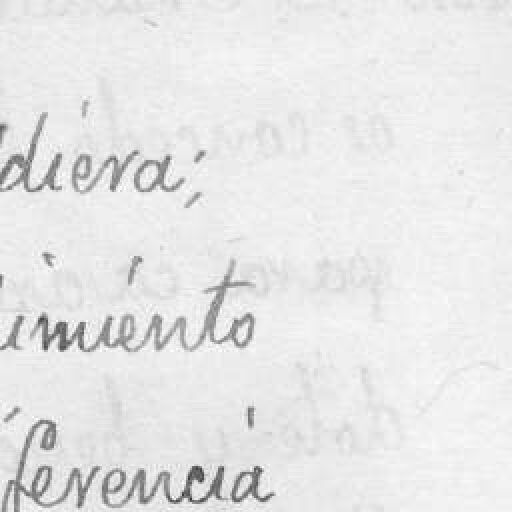 diera;
imiento
ferencia